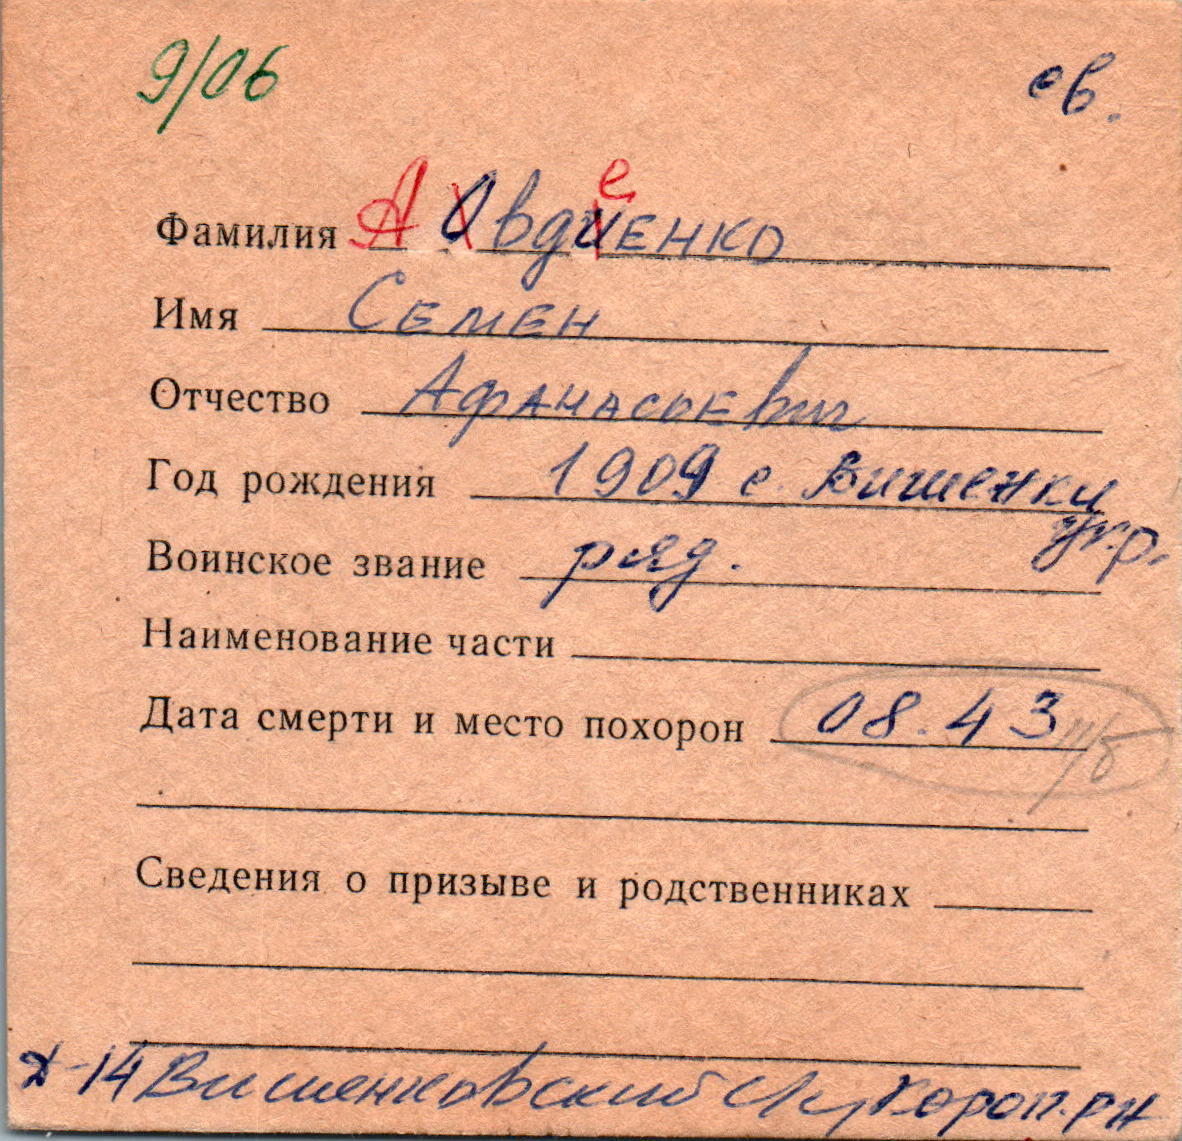 9/06
св.
Фамилия А Овдиенко
е
Имя Семен
Отчество Афанасьевич
Год рождения 1909 с. Вишенки
укр.
Воинское звание ряд.
Наименование части
Дата смерти и место похорон 08.43
Сведения о призыве и родственниках
14 Вишенковский Короп. рн